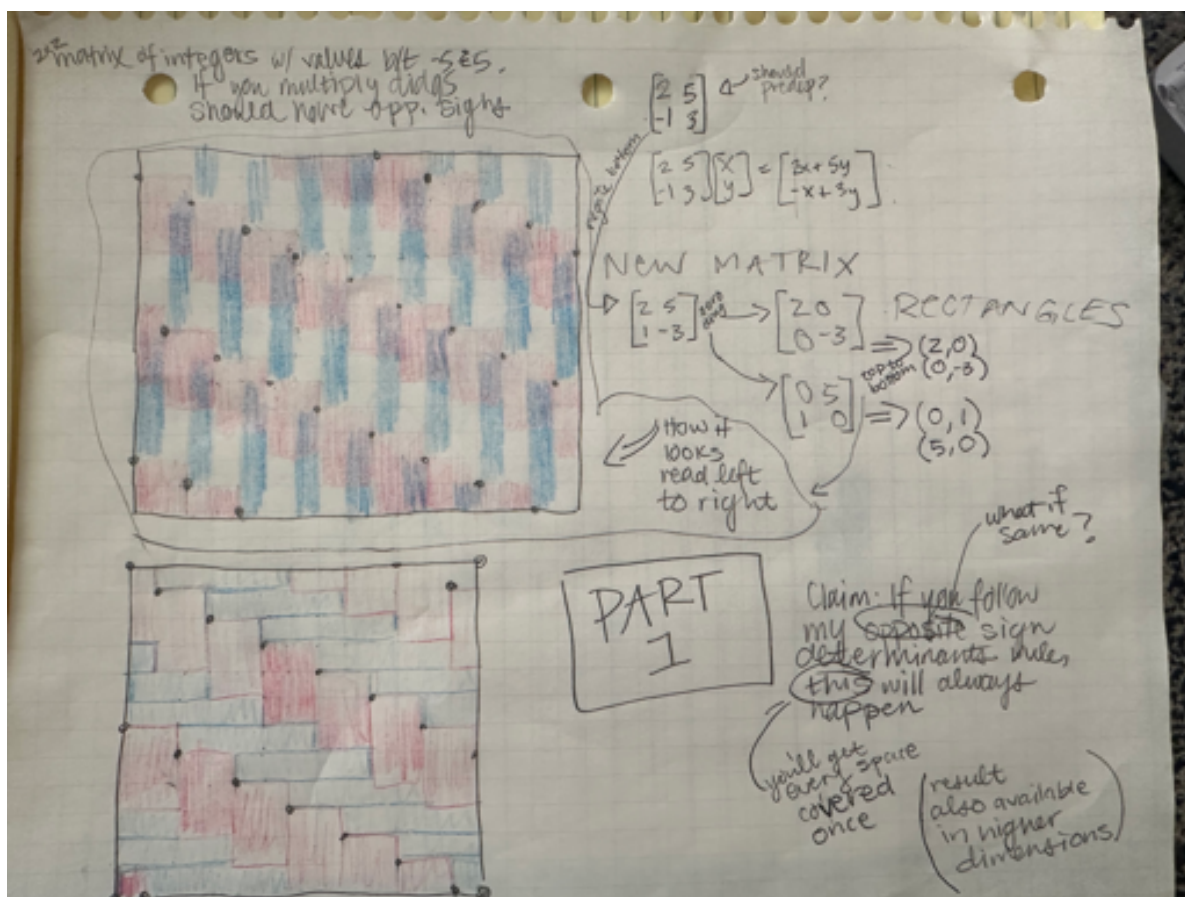 2x2 matrix of integers w/ values b/t -5 & 5.
If you multiply diags
should have opp. signs
[2 5
-1 3]
should
predip?
[2 5
-1 3] [x
y] = [2x + 5y
-x + 3y]
negate bottom
NEW MATRIX
[2 5
1 -3]
zero
diag
[2 0
0 -3]
[0 5
1 0]
RECTANGLES
top to
bottom
⇒ (2,0)
(0,-3)
⇒ (0,1)
(5,0)
How it
looks
read left
to right
PART
1
what if
same?
Claim: If you follow
my opposite sign
determinants rule,
this will always
happen
you'll get
every space
covered
once
(result
also available
in higher
dimensions)